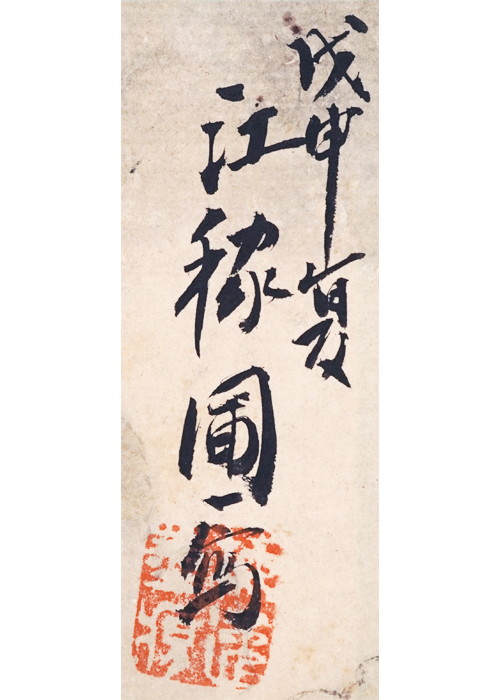 戊申夏
江稼圃寫